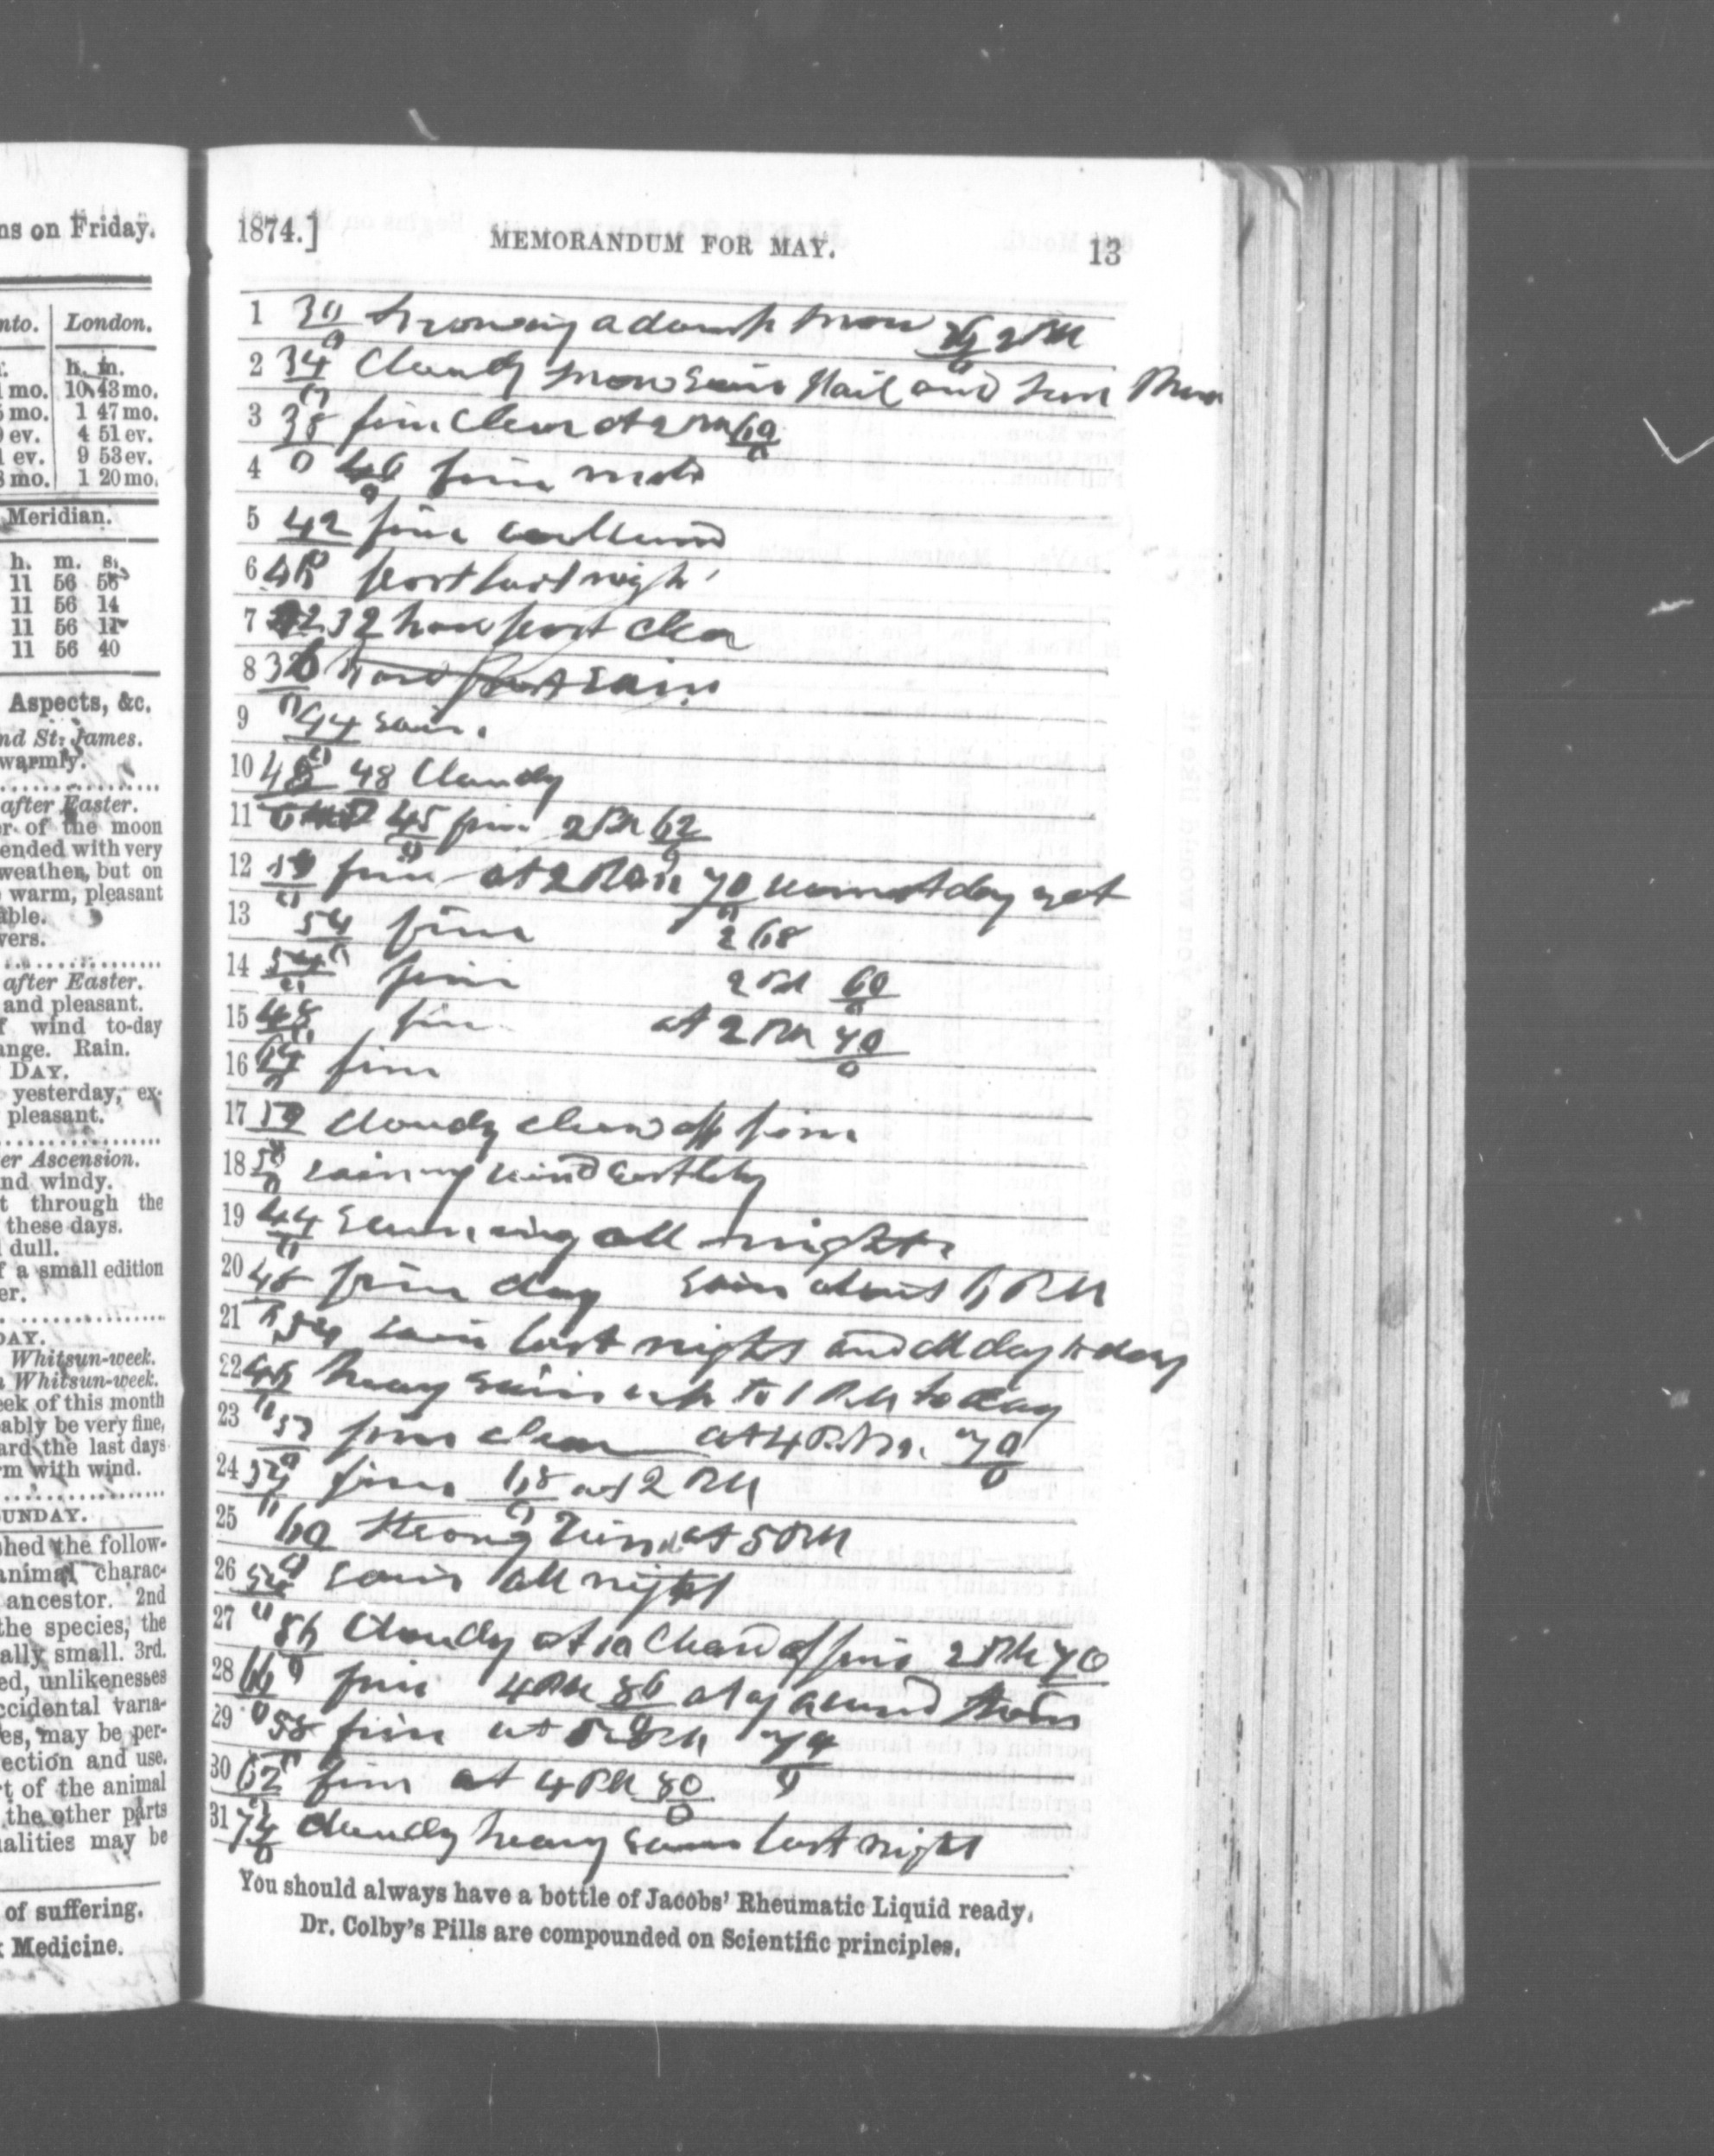 ns on Friday.
nto. London.
h. m.
mo. 10 43 mo.
mo. 1 47 mo.
ev. 4 51 ev.
ev. 9 53 ev.
mo. 1 20 mo.
Meridian.
h. m. s.
11 56 56
11 56 14
11 56 11
11 56 40
Aspects, &c.
nd St. James.
warmly.
after Easter.
r of the moon
ended with very
weather, but on
warm, pleasant
able.
vers.
after Easter.
and pleasant.
f wind to-day
ange. Rain.
DAY.
yesterday, ex-
pleasant.
er Ascension.
nd windy.
t through the
these days.
dull.
f a small edition
er.
DAY.
Whitsun-week.
Whitsun-week.
eek of this month
ably be very fine,
ard the last days
rm with wind.
UNDAY.
shed the follow-
animal charac-
ancestor. 2nd
the species, the
ally small. 3rd.
ed, unlikenesses
ccidental varia-
es, may be per-
ection and use.
t of the animal
the other parts
ualities may be
of suffering.
Medicine.
1874.] MEMORANDUM FOR MAY. 13
1 30 snowing a damp snow 2 PM
2 34 Cloudy snow rain Hail and
3 38 fine clear at 2 PM 60
4 46 fine
5 42 fine
6 frost last night
7 32 hard frost clear
8 hard frost rain
9 44 rain.
10 48 48 Cloudy
11 45 fine 2 PM 62
12 fine at 2 PM 70 warmest day yet
13 54 fine 2 68
14 54 fine 2 PM 60
15 48 fine at 2 PM 70
16 64 fine
17 50 cloudy cleard off fine
18 raining wind
19 44 raining all night
20 48 fine day rain about 6 PM
21 54 rain last night and all day to day
22 46 heavy rain up to 1 PM to day
23 fine clear at 4 P.M. 70
24 fine 68 at 2 PM
25 60 strong wind at 5 PM
26 54 rain all night
27 56 Cloudy at 10 cleard off fine 2 PM 70
28 66 fine 4 PM 86 at
29 58 fine at 5 PM
30 62 fine at 4 PM 80
31 74 cloudy heavy rain last night
You should always have a bottle of Jacobs' Rheumatic Liquid ready.
Dr. Colby's Pills are compounded on Scientific principles.